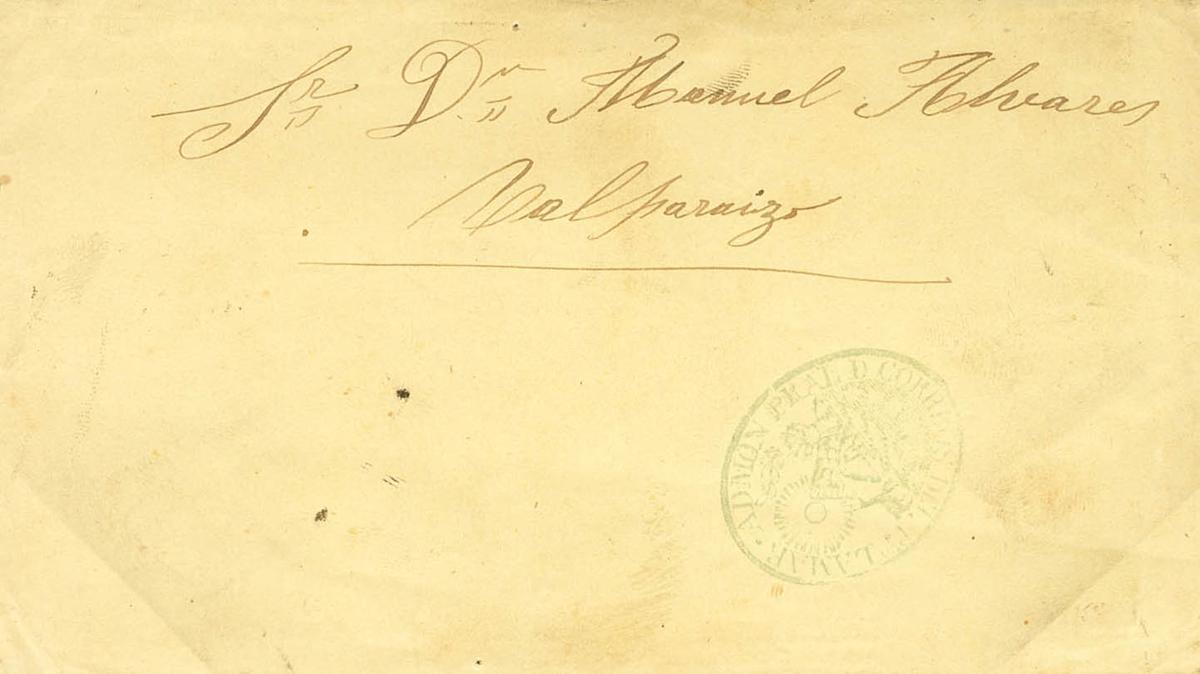 Sr Dn Manuel Alvares
Valparaizo
ADMON PRAL D CORREOS DEL P. LAMAR